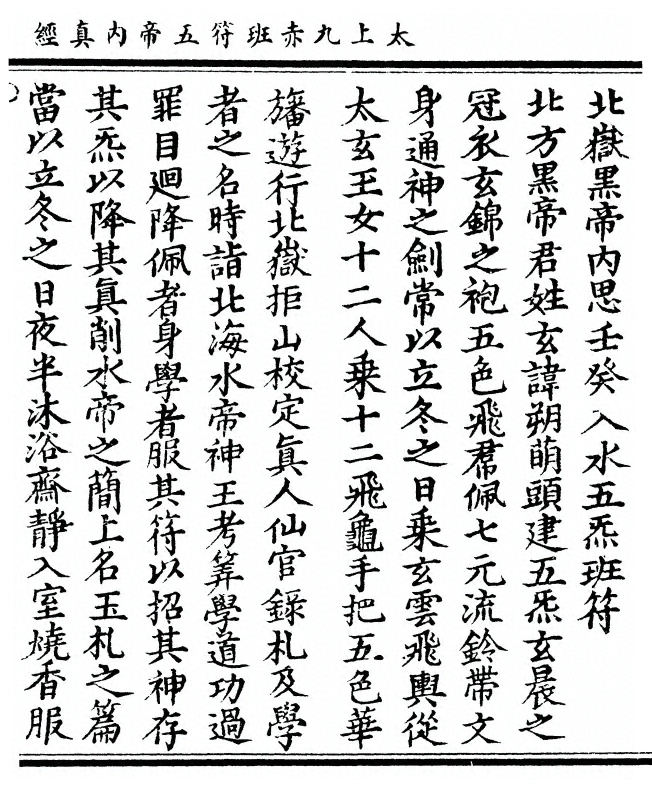 太上九赤班符五帝內真經
北嶽黑帝內思壬癸入水五炁班符
北方黑帝君姓玄諱朔萌頭建五炁玄晨之
冠衣玄錦之袍五色飛帬佩七元流鈴帶文
身通神之劍常以立冬之日乘玄雲飛輿從
太玄玉女十二人乘十二飛龜手把五色華
旛遊行北嶽拒山校定真人仙官錄札及學
者之名時詣北海水帝神王考筭學道功過
罪目廻降佩者身學者服其符以招其神存
其炁以降其真削水帝之簡上名玉札之篇
當以立冬之日夜半沐浴齋靜入室燒香服